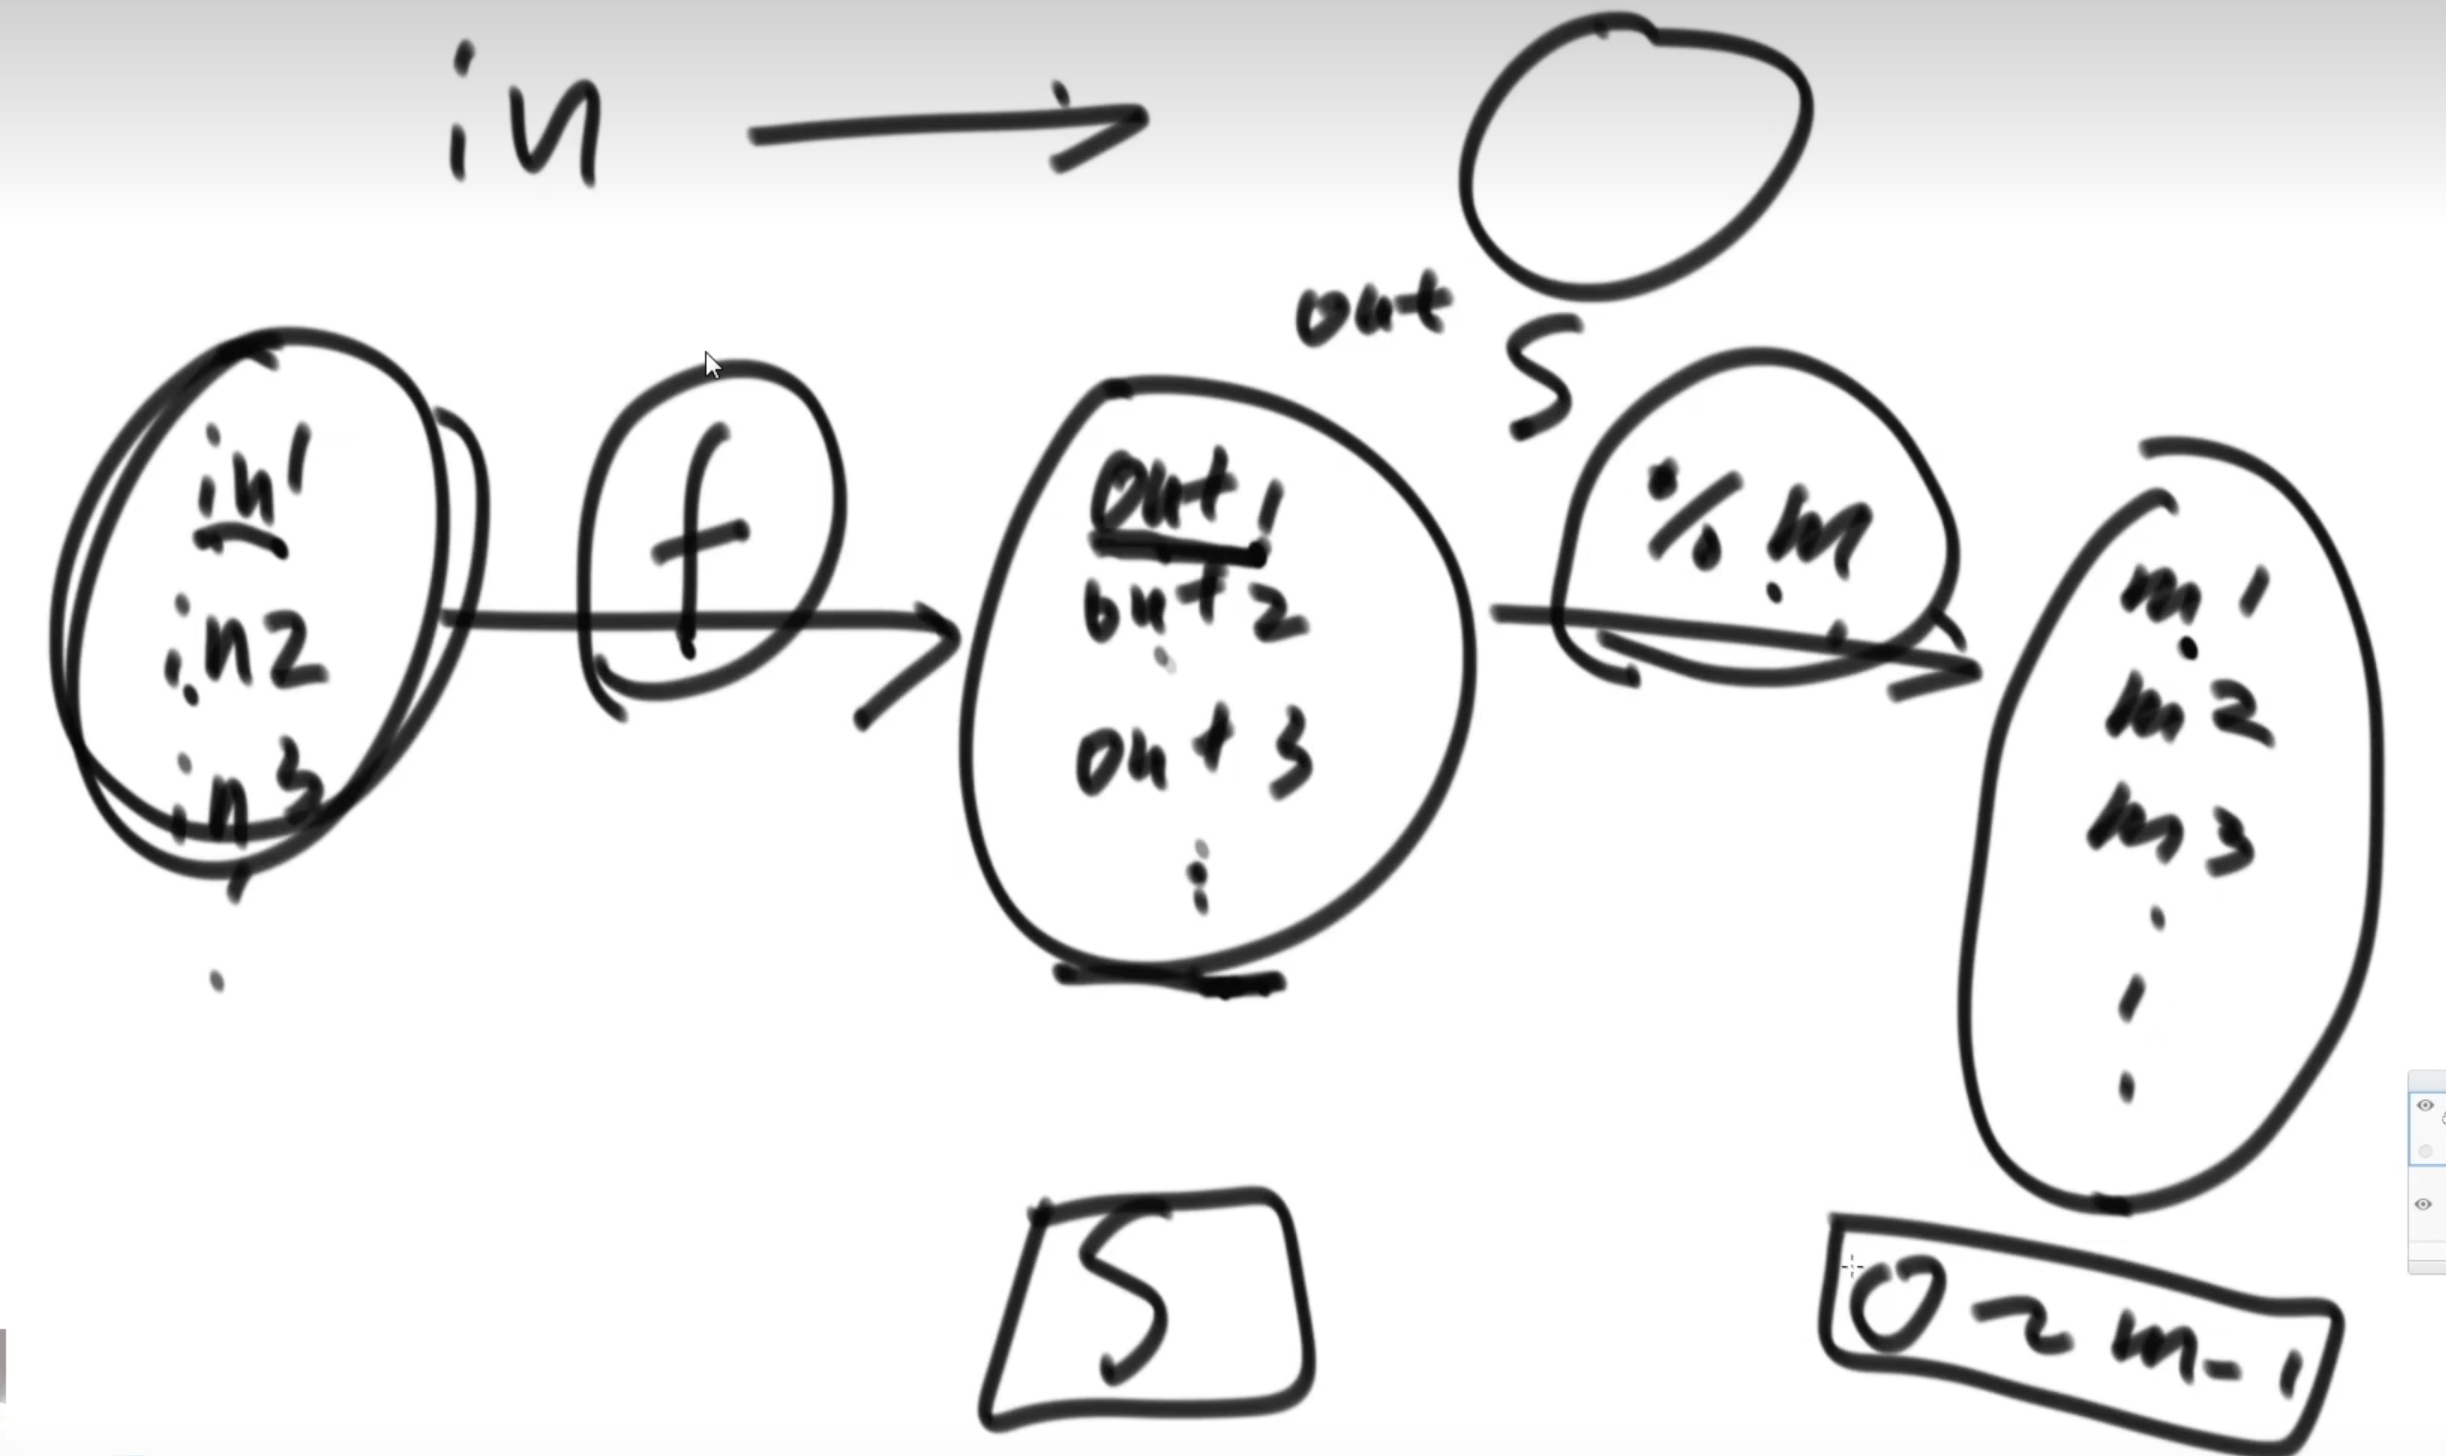 in
out
S
in1
in2
in3
f
out1
out2
out3
% m
m1
m2
m3
S
0 ~ m-1